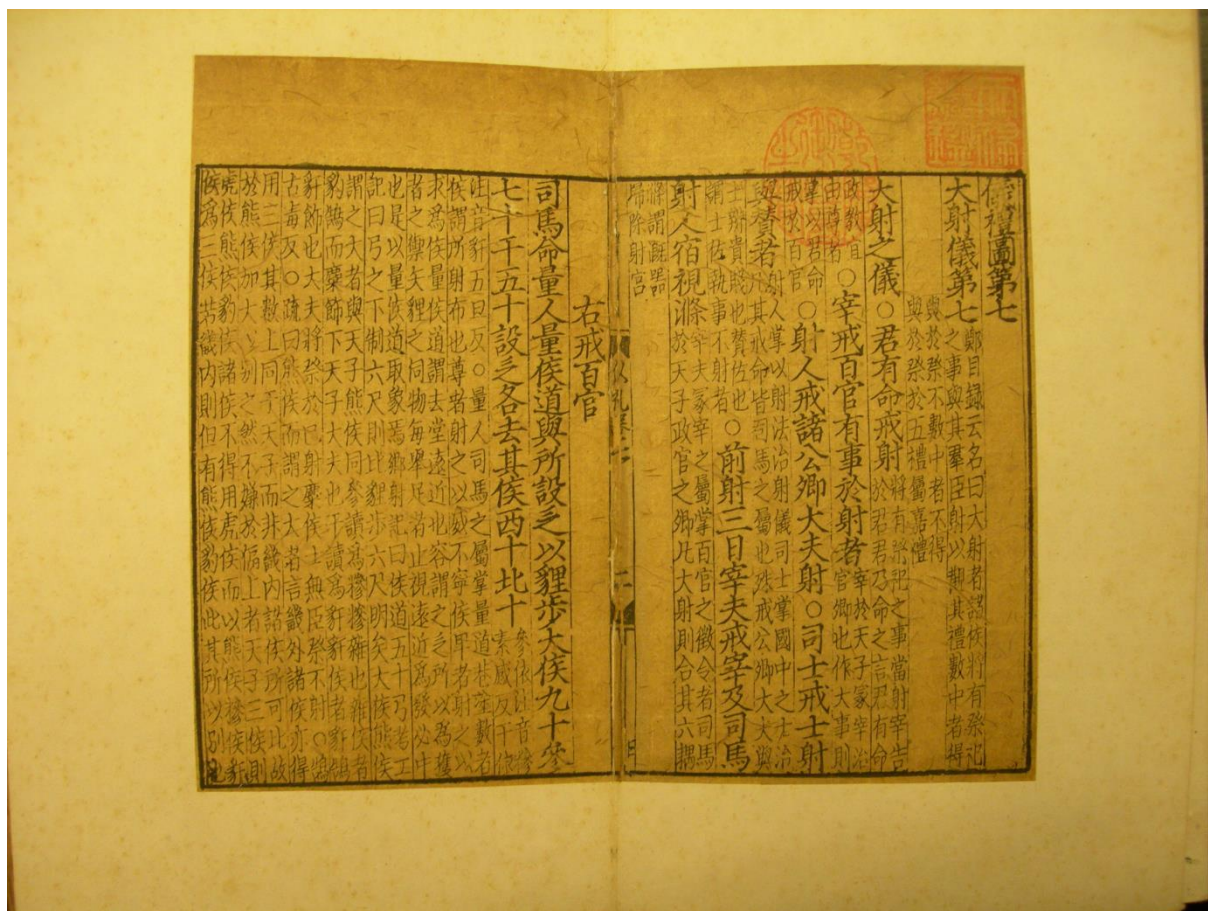 儀禮圖第七
大射儀第七
鄭目録云名曰大射者諸侯將有祭祀
之事與其羣臣射以觀其禮數中者得
與於祭不數中者不得
與於祭於五禮屬嘉禮
大射之儀○君有命戒射
將有祭祀之事當射宰告
於君君乃命之言君有命
政教宜
由尊者
○宰戒百官有事於射者
宰於天子冢宰治
官卿也作大事則
掌以君命
戒於百官
○射人戒諸公卿大夫射○司士戒士射
與贊者
射人掌以射法治射儀司士掌國中之士治
凡其戒命皆司馬之屬也殊戒公卿大夫與
士辯貴賤也贊佐也
謂士佐執事不射者
○前射三日宰夫戒宰及司馬
射人宿視滌
宰夫冢宰之屬掌百官之徵令者司馬
於天子政官之卿凡大射則合其六耦
滌謂溉器
埽除射宮
右戒百官
司馬命量人量侯道與所設乏以貍步大侯九十參
七十干五十設乏各去其侯西十北十
參依注音糝
素感反干依
注音豻五旦反○量人司馬之屬掌量道巷塗數者
侯謂所射布也尊者射之以威不寧侯卑者射之以
求為侯量侯道謂去堂遠近也容謂之乏所以為獲
者之禦矢貍之伺物每舉足者止視遠近為發必中
也是以量侯道取象焉鄉射記曰侯道五十弓考工
記曰弓之下制六尺則此貍步六尺明矣大侯熊侯
謂之大者與天子熊侯同參讀為糝糝雜也雜侯者
豹鵠而麋飾下天子大夫也干讀為豻豻侯者豻鵠
豻飾也大夫將祭於己射麋侯士無臣祭不射○鵠
古毒反○疏曰熊侯而謂之大者言畿外諸侯亦得
用三侯其數上同于天子而非畿內諸侯所可比故
於熊侯加大以別之然不嫌於偪上者天子三侯則
虎侯熊侯豹侯諸侯不得用虎侯而以熊侯糝侯豻
侯為三侯若畿內則但有熊侯豹侯此其所以別也